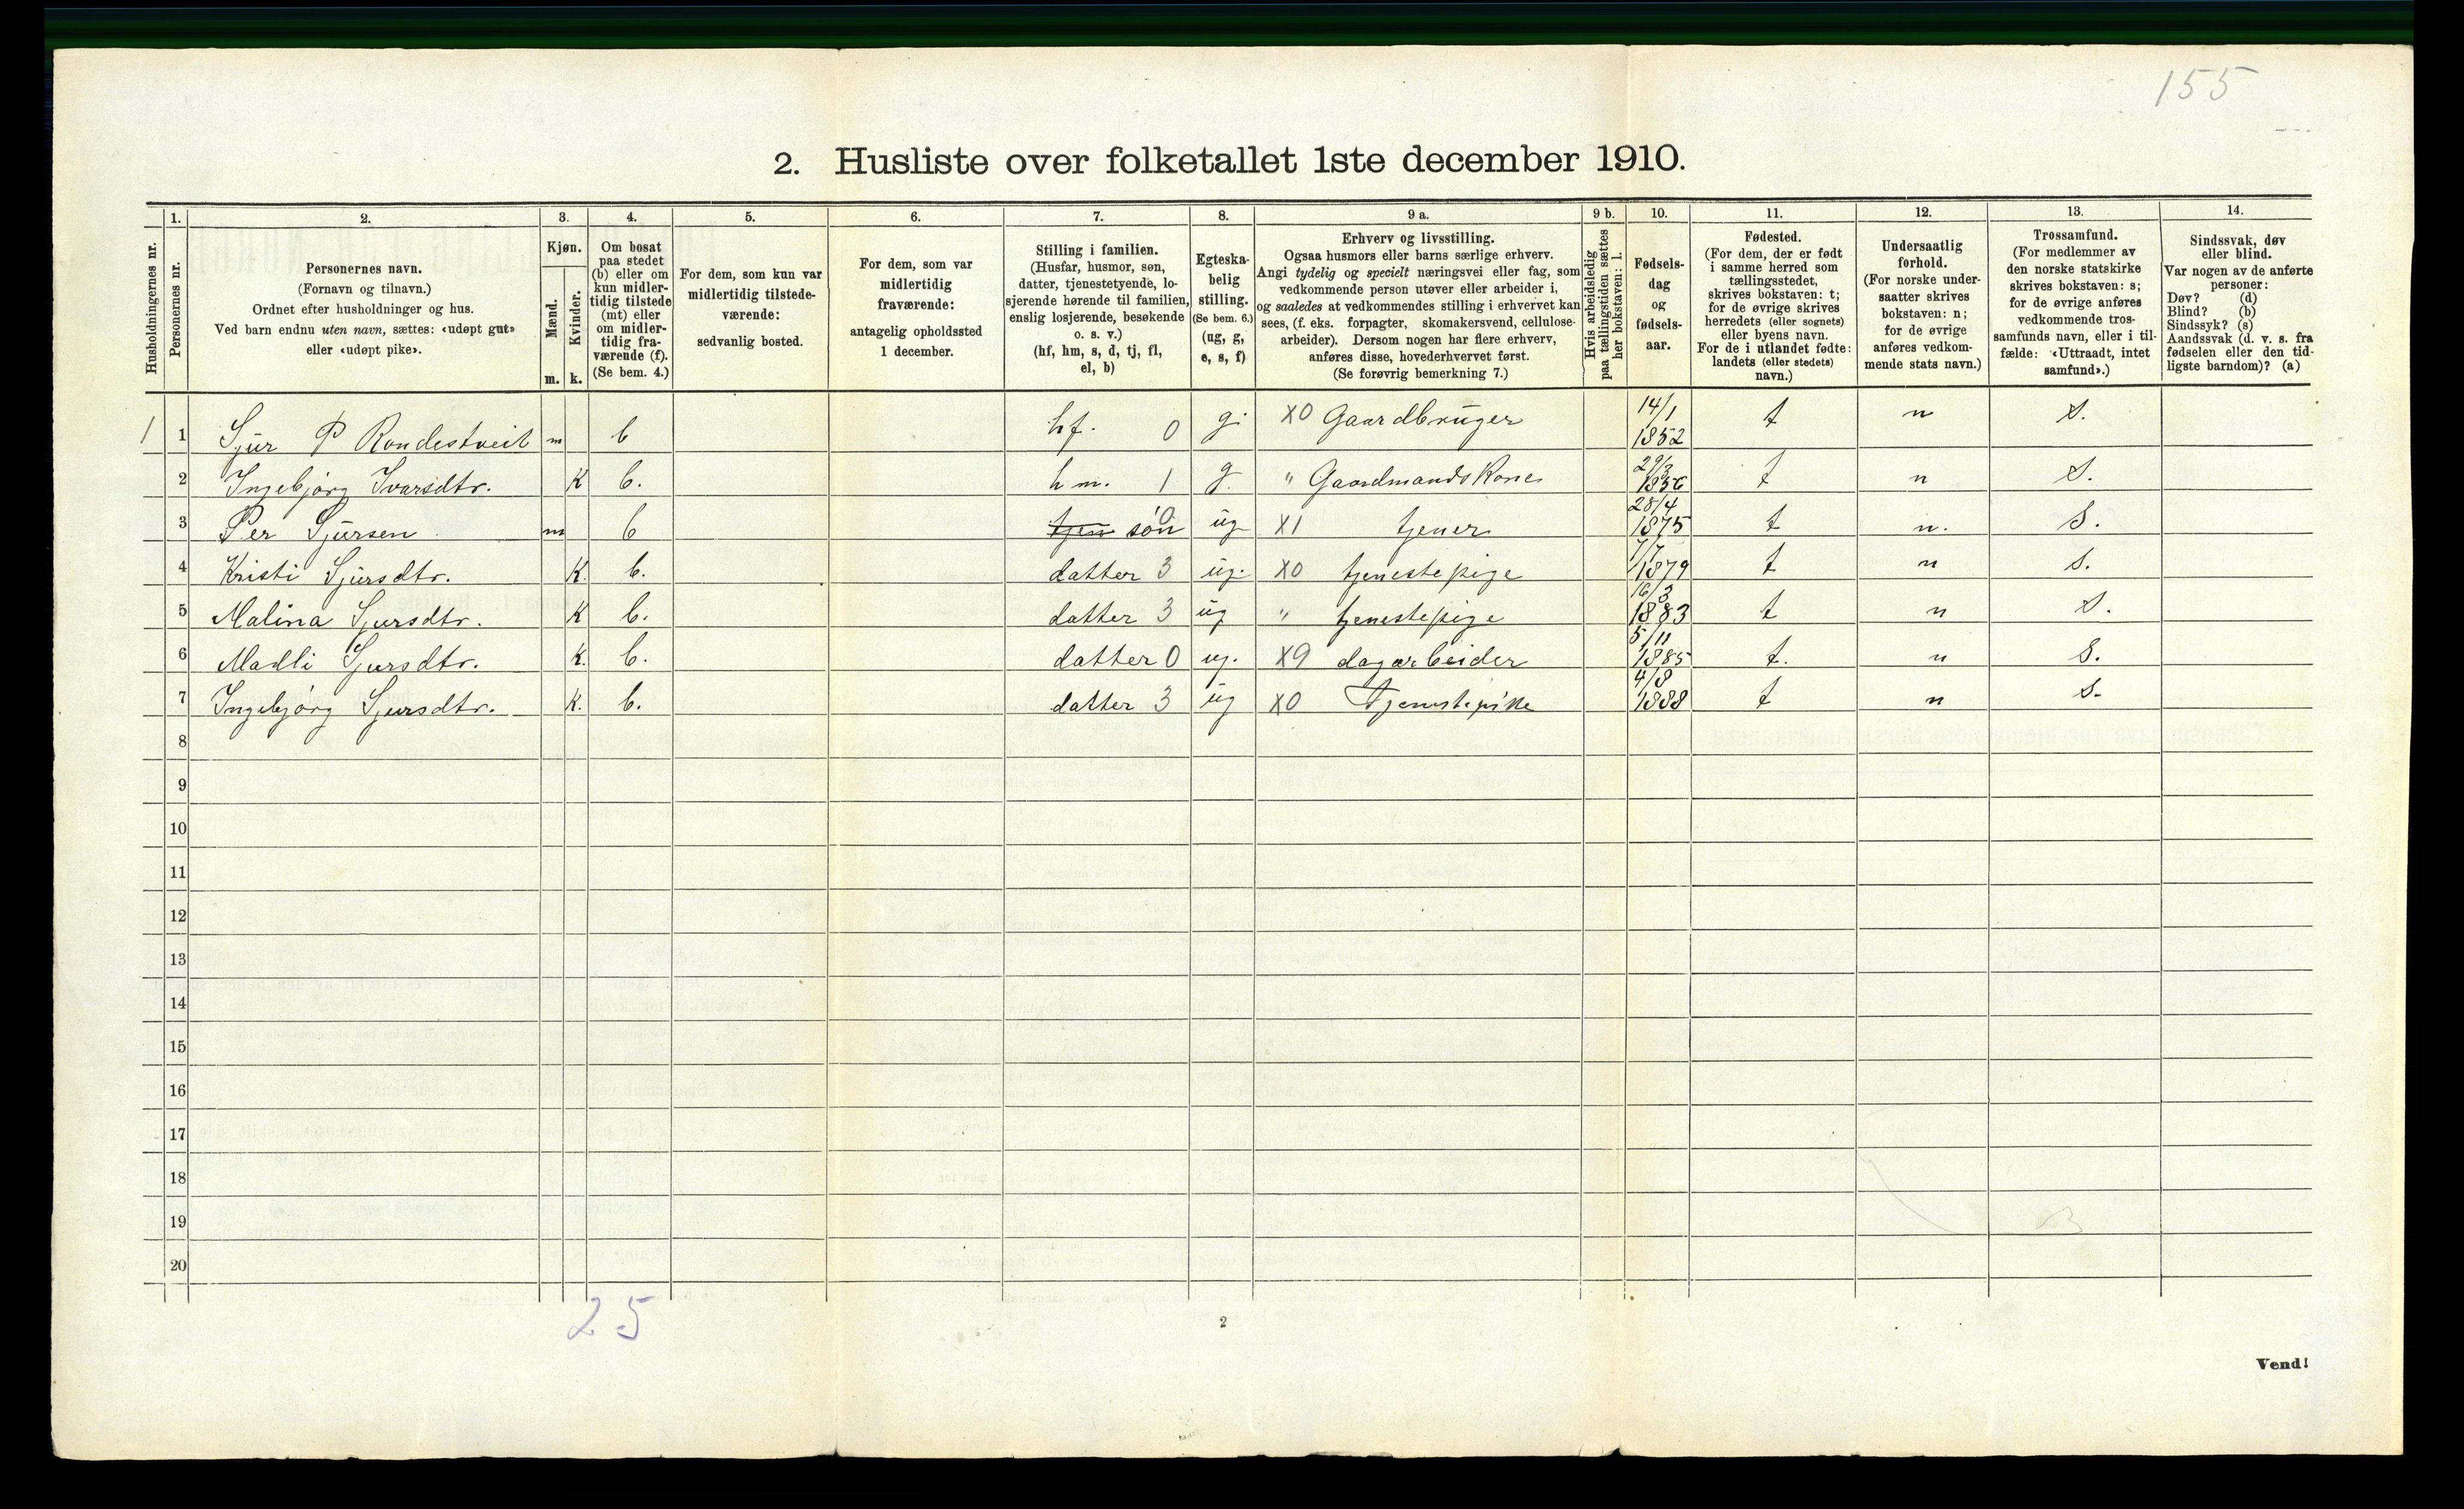 155
2. Husliste over folketallet 1ste december 1910.
1. 2. 3. 4. 5. 6. 7. 8. 9 a. 9 b. 10. 11. 12. 13. 14.
Husholdningernes nr.
Personernes nr.
Personernes navn.
(Fornavn og tilnavn.)
Ordnet efter husholdninger og hus.
Ved barn endnu uten navn, sættes: «udøpt gut»
eller «udøpt pike».
Kjøn.
Mænd.
Kvinder.
m. k.
Om bosat
paa stedet
(b) eller om
kun midler-
tidig tilstede
(mt) eller
om midler-
tidig fra-
værende (f).
(Se bem. 4.)
For dem, som kun var
midlertidig tilstede-
værende:
sedvanlig bosted.
For dem, som var
midlertidig
fraværende:
antagelig opholdssted
1 december.
Stilling i familien.
(Husfar, husmor, søn,
datter, tjenestetyende, lo-
sjerende hørende til familien,
enslig losjerende, besøkende
o. s. v.)
(hf, hm, s, d, tj, fl,
el, b)
Egteska-
belig
stilling.
(Se bem. 6.)
(ug, g,
e, s, f)
Erhverv og livsstilling.
Ogsaa husmors eller barns særlige erhverv.
Angi tydelig og specielt næringsvei eller fag, som
vedkommende person utøver eller arbeider i,
og saaledes at vedkommendes stilling i erhvervet kan
sees, (f. eks. forpagter, skomakersvend, cellulose-
arbeider). Dersom nogen har flere erhverv,
anføres disse, hovederhvervet først.
(Se forøvrig bemerkning 7.)
Hvis arbeidsledig
paa tællingstiden sættes
her bokstaven: l.
Fødsels-
dag
og
fødsels-
aar.
Fødested.
(For dem, der er født
i samme herred som
tællingsstedet,
skrives bokstaven: t;
for de øvrige skrives
herredets (eller sognets)
eller byens navn.
For de i utlandet fødte:
landets (eller stedets)
navn.)
Undersaatlig
forhold.
(For norske under-
saatter skrives
bokstaven: n;
for de øvrige
anføres vedkom-
mende stats navn.)
Trossamfund.
(For medlemmer av
den norske statskirke
skrives bokstaven: s;
for de øvrige anføres
vedkommende tros-
samfunds navn, eller i til-
fælde: «Uttraadt, intet
samfund».)
Sindssvak, døv
eller blind.
Var nogen av de anførte
personer:
Døv? (d)
Blind? (b)
Sindssyk? (s)
Aandssvak (d. v. s. fra
fødselen eller den tid-
ligste barndom)? (a)
1 1 Sjur P Rondestveit m b hf. 0 g. X0 Gaardbruger 14/1 1852 t n S.
2 Ingebjørg Ivarsdtr. K b. hm. 1 g. " GaardmandsKone 29/3 1856 t n S.
3 Per Sjursen m b tjen søn 0 ug X1 tjener 28/4 1875 t n. S.
4 Kristi Sjursdtr. K. b. datter 3 ug. X0 tjenestepige 7/7 1879 t n S.
5 Malina Sjursdtr. K b. datter 3 ug " tjenestepige 16/3 1883 t n S.
6 Madli Sjursdtr. K. b. datter 0 ug. X9 dagarbeider 5/11 1885 t. n S.
7 Ingebjørg Sjursdtr. K. b. datter 3 ug X0 Tjenestepike 4/8 1888 t n S.
8
9
10
11
12
13
14
15
16
17
18
19
20
25
2
Vend!